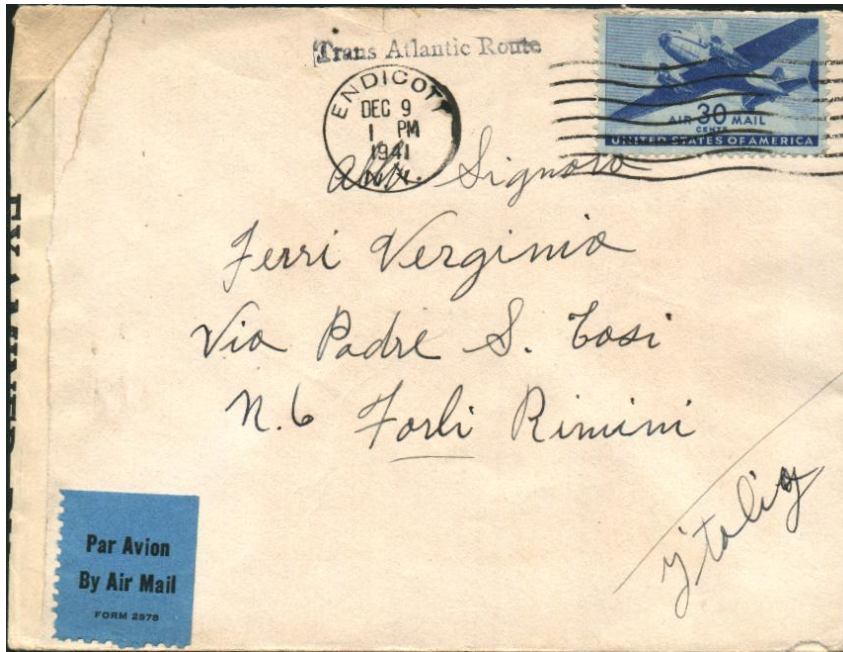 Trans Atlantic Route
ENDICOTT
DEC 9
1 PM
1941
N.Y.
AIR 30 MAIL
CENTS
UNITED STATES OF AMERICA
Alla Signora
Ferri Verginia
Via Padre S. Tosi
N. 6 Forli Rimini
Ytalia
EXAMINED
Par Avion
By Air Mail
FORM 2978